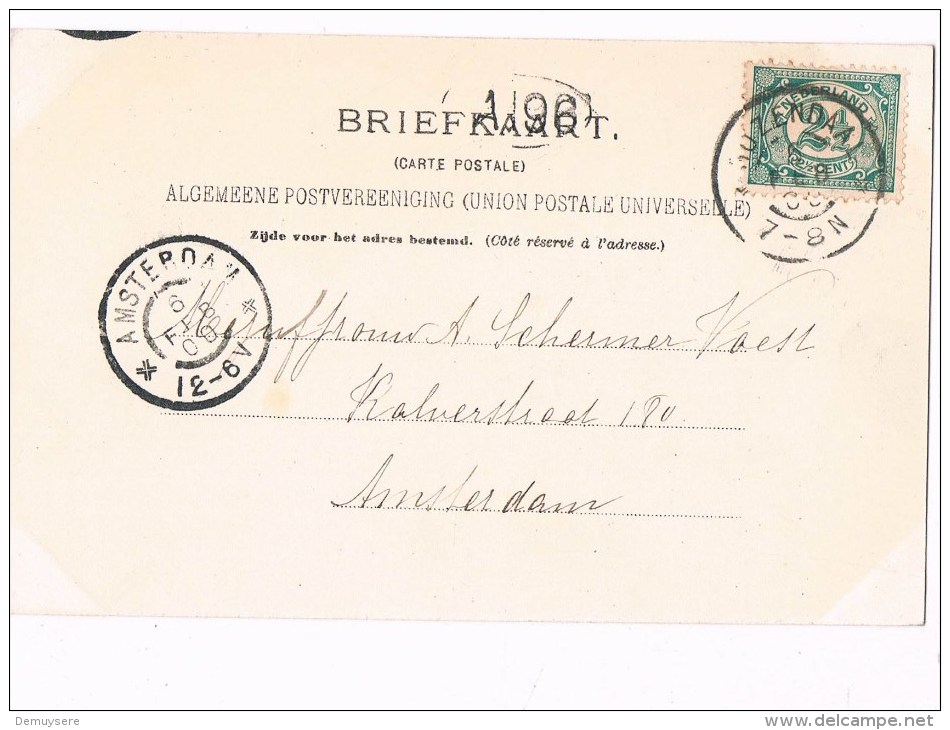 1/96)
BRIEFKAART.
(CARTE POSTALE)
ALGEMEENE POSTVEREENIGING (UNION POSTALE UNIVERSELLE)
Zijde voor het adres bestemd. (Côté réservé à l'adresse.)
NEDERLAND
2½
2½ CENT
7-8N
AMSTERDAM
6 FEB 00
12-6V
A. Schermer Voest
Kalverstraat 180
Amsterdam
Demuysere
www.delcampe.net